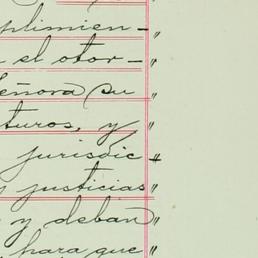 plimien- "
el otor- "
Señora su "
turos, y "
jurisdic- "
y justicias "
y deban "
para que "